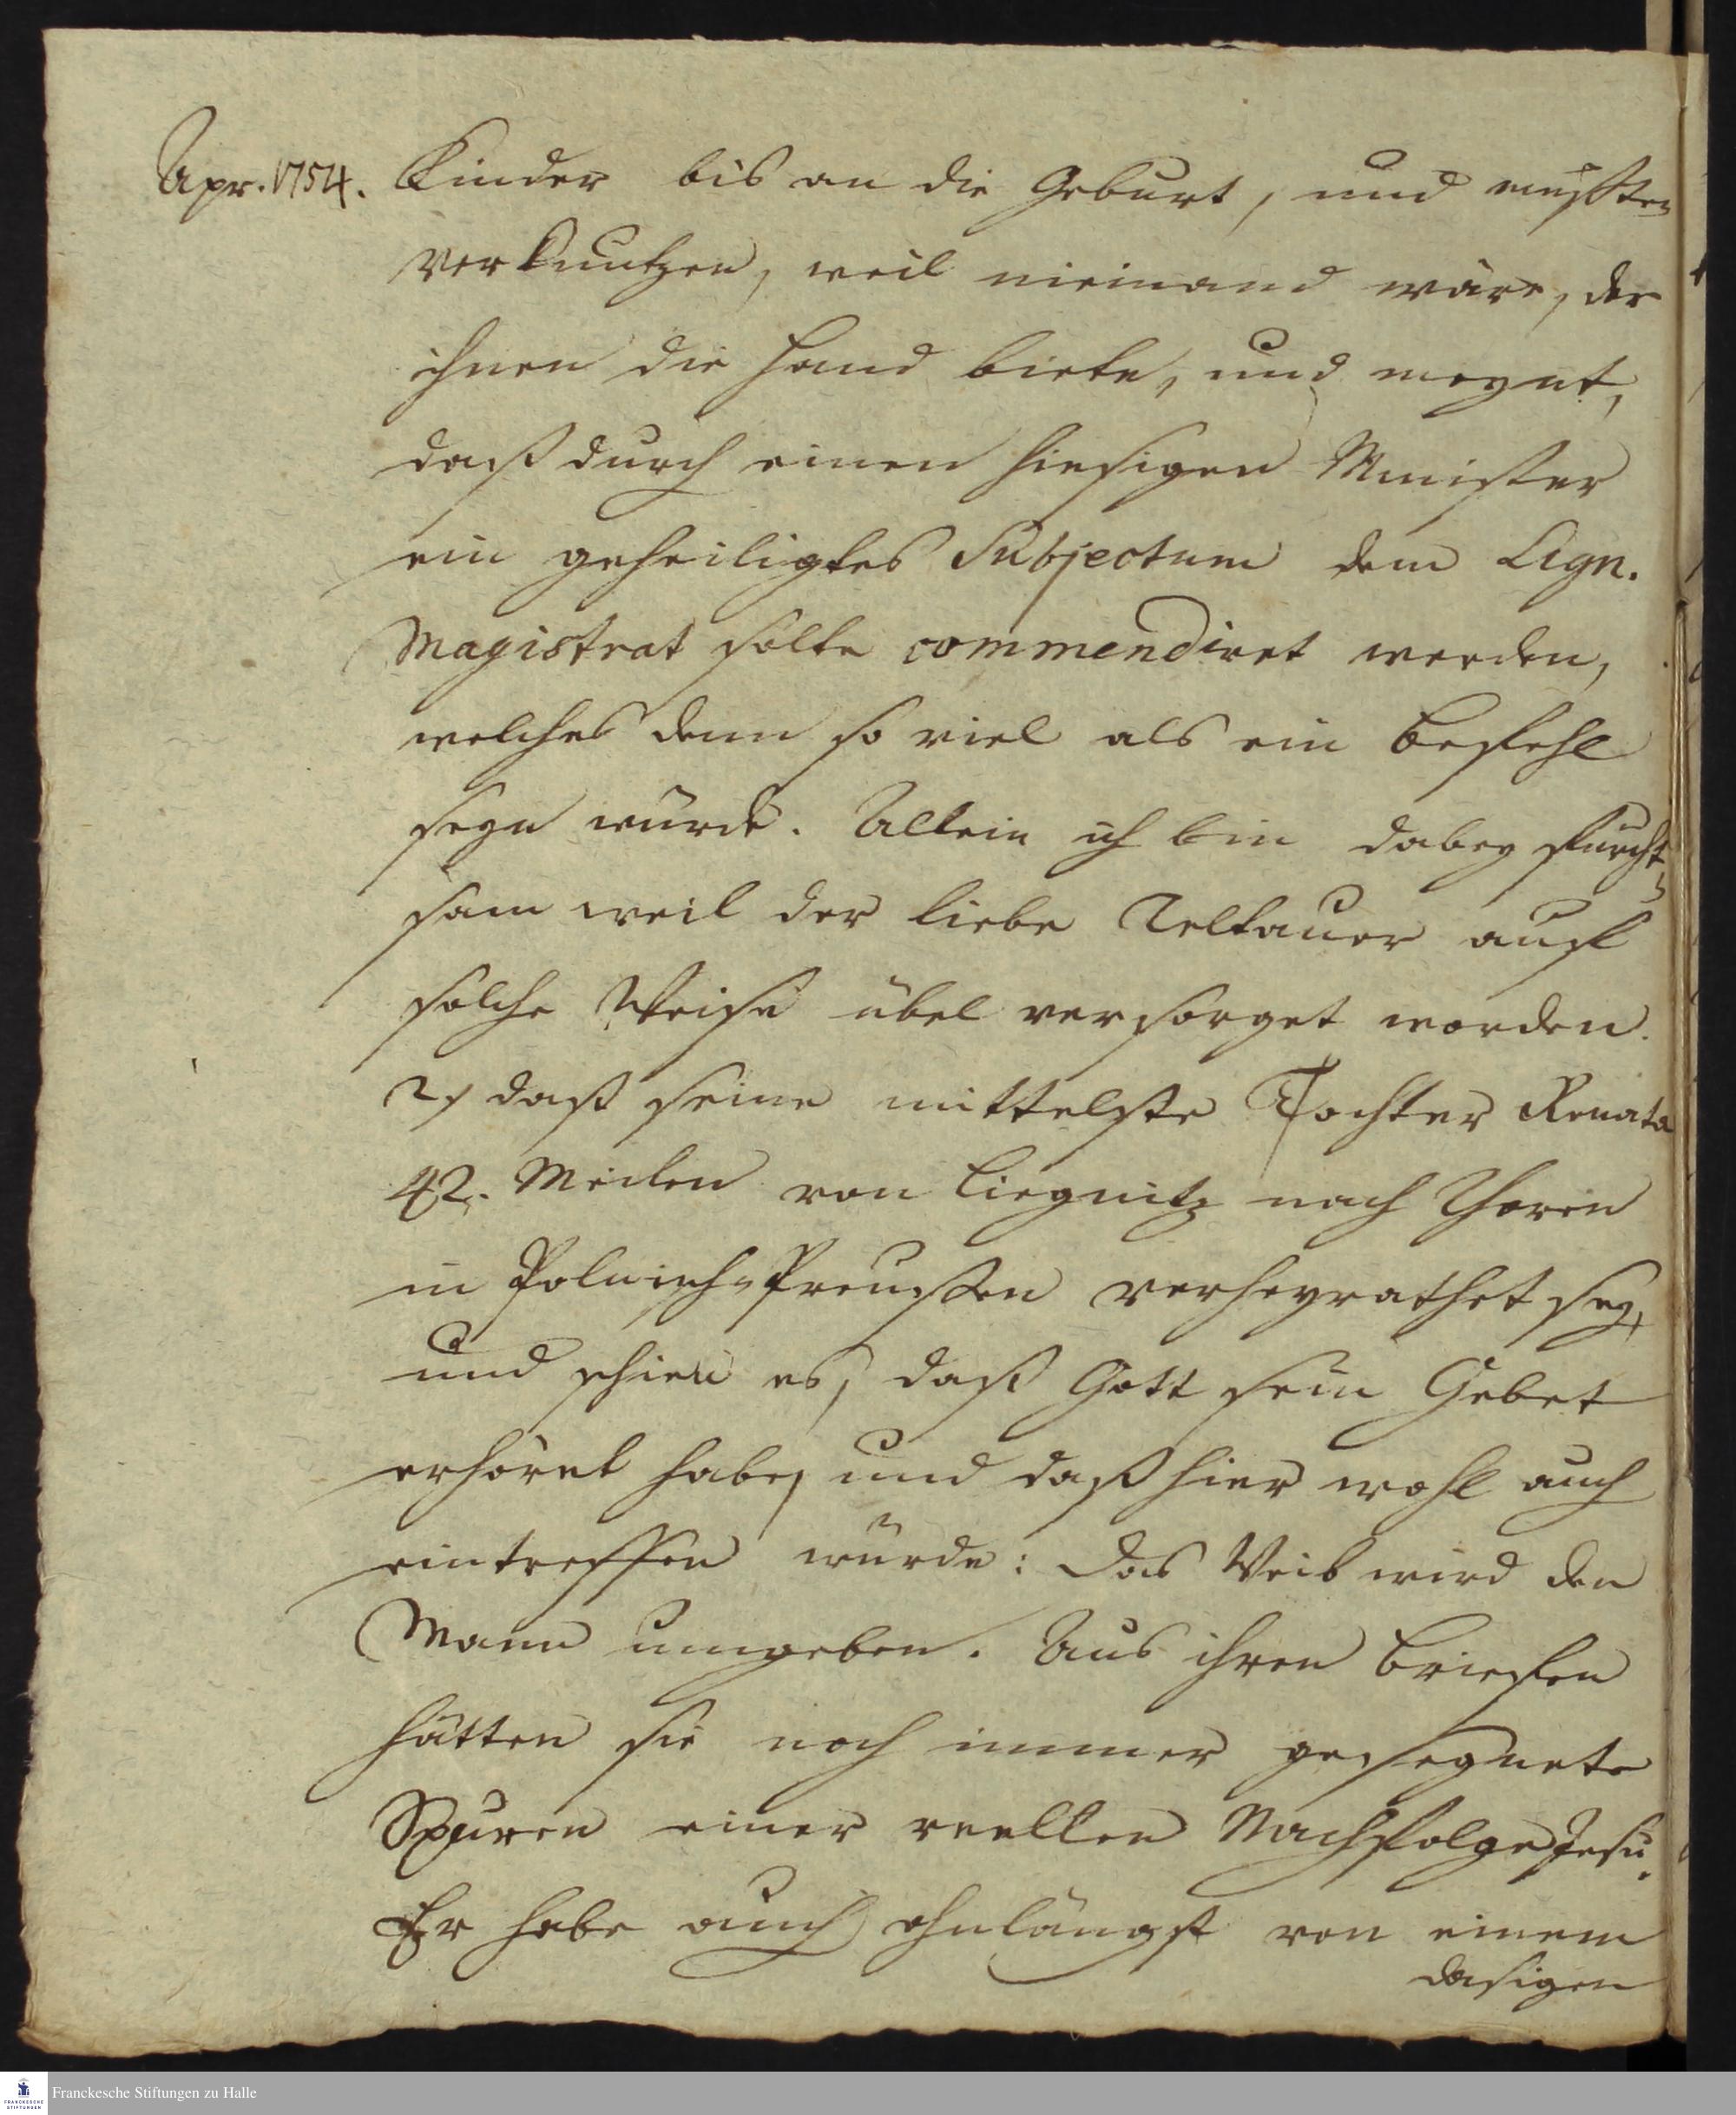 Apr. 1754. Kinder bis an die Geburt, und müßten
weil niemand wäre, der
ihnen die Hand biete, und meynt,
daß durch einen hiesigen Minister
ein geheiligtes Subjectum dem Lign.
Magistrat solte commendiret werden,
welches denn so viel als ein Befehl
seyn würde. Allein ich bin dabey furcht-
sam weil der liebe Teltauer auf
solche Weise übel versorget worden.
2, daß seine mittelste Tochter Renata
42. Meilen von Liegnitz nach Thorn
in Polnisch-Preussen verheyrathet sey,
und schien es, daß Gott sein Gebet
erhöret habe, und daß hier wohl auch
eintreffen würde: Das Weib wird den
Mann umgeben. Aus ihren Briefen
hätten sie noch immer gesegnete
Spuren einer reellen Nachfolge Jesu.
Er habe auch ohnlängst von einem
dasigen
Franckesche Stiftungen zu Halle
FRANCKESCHE
STIFTUNGEN